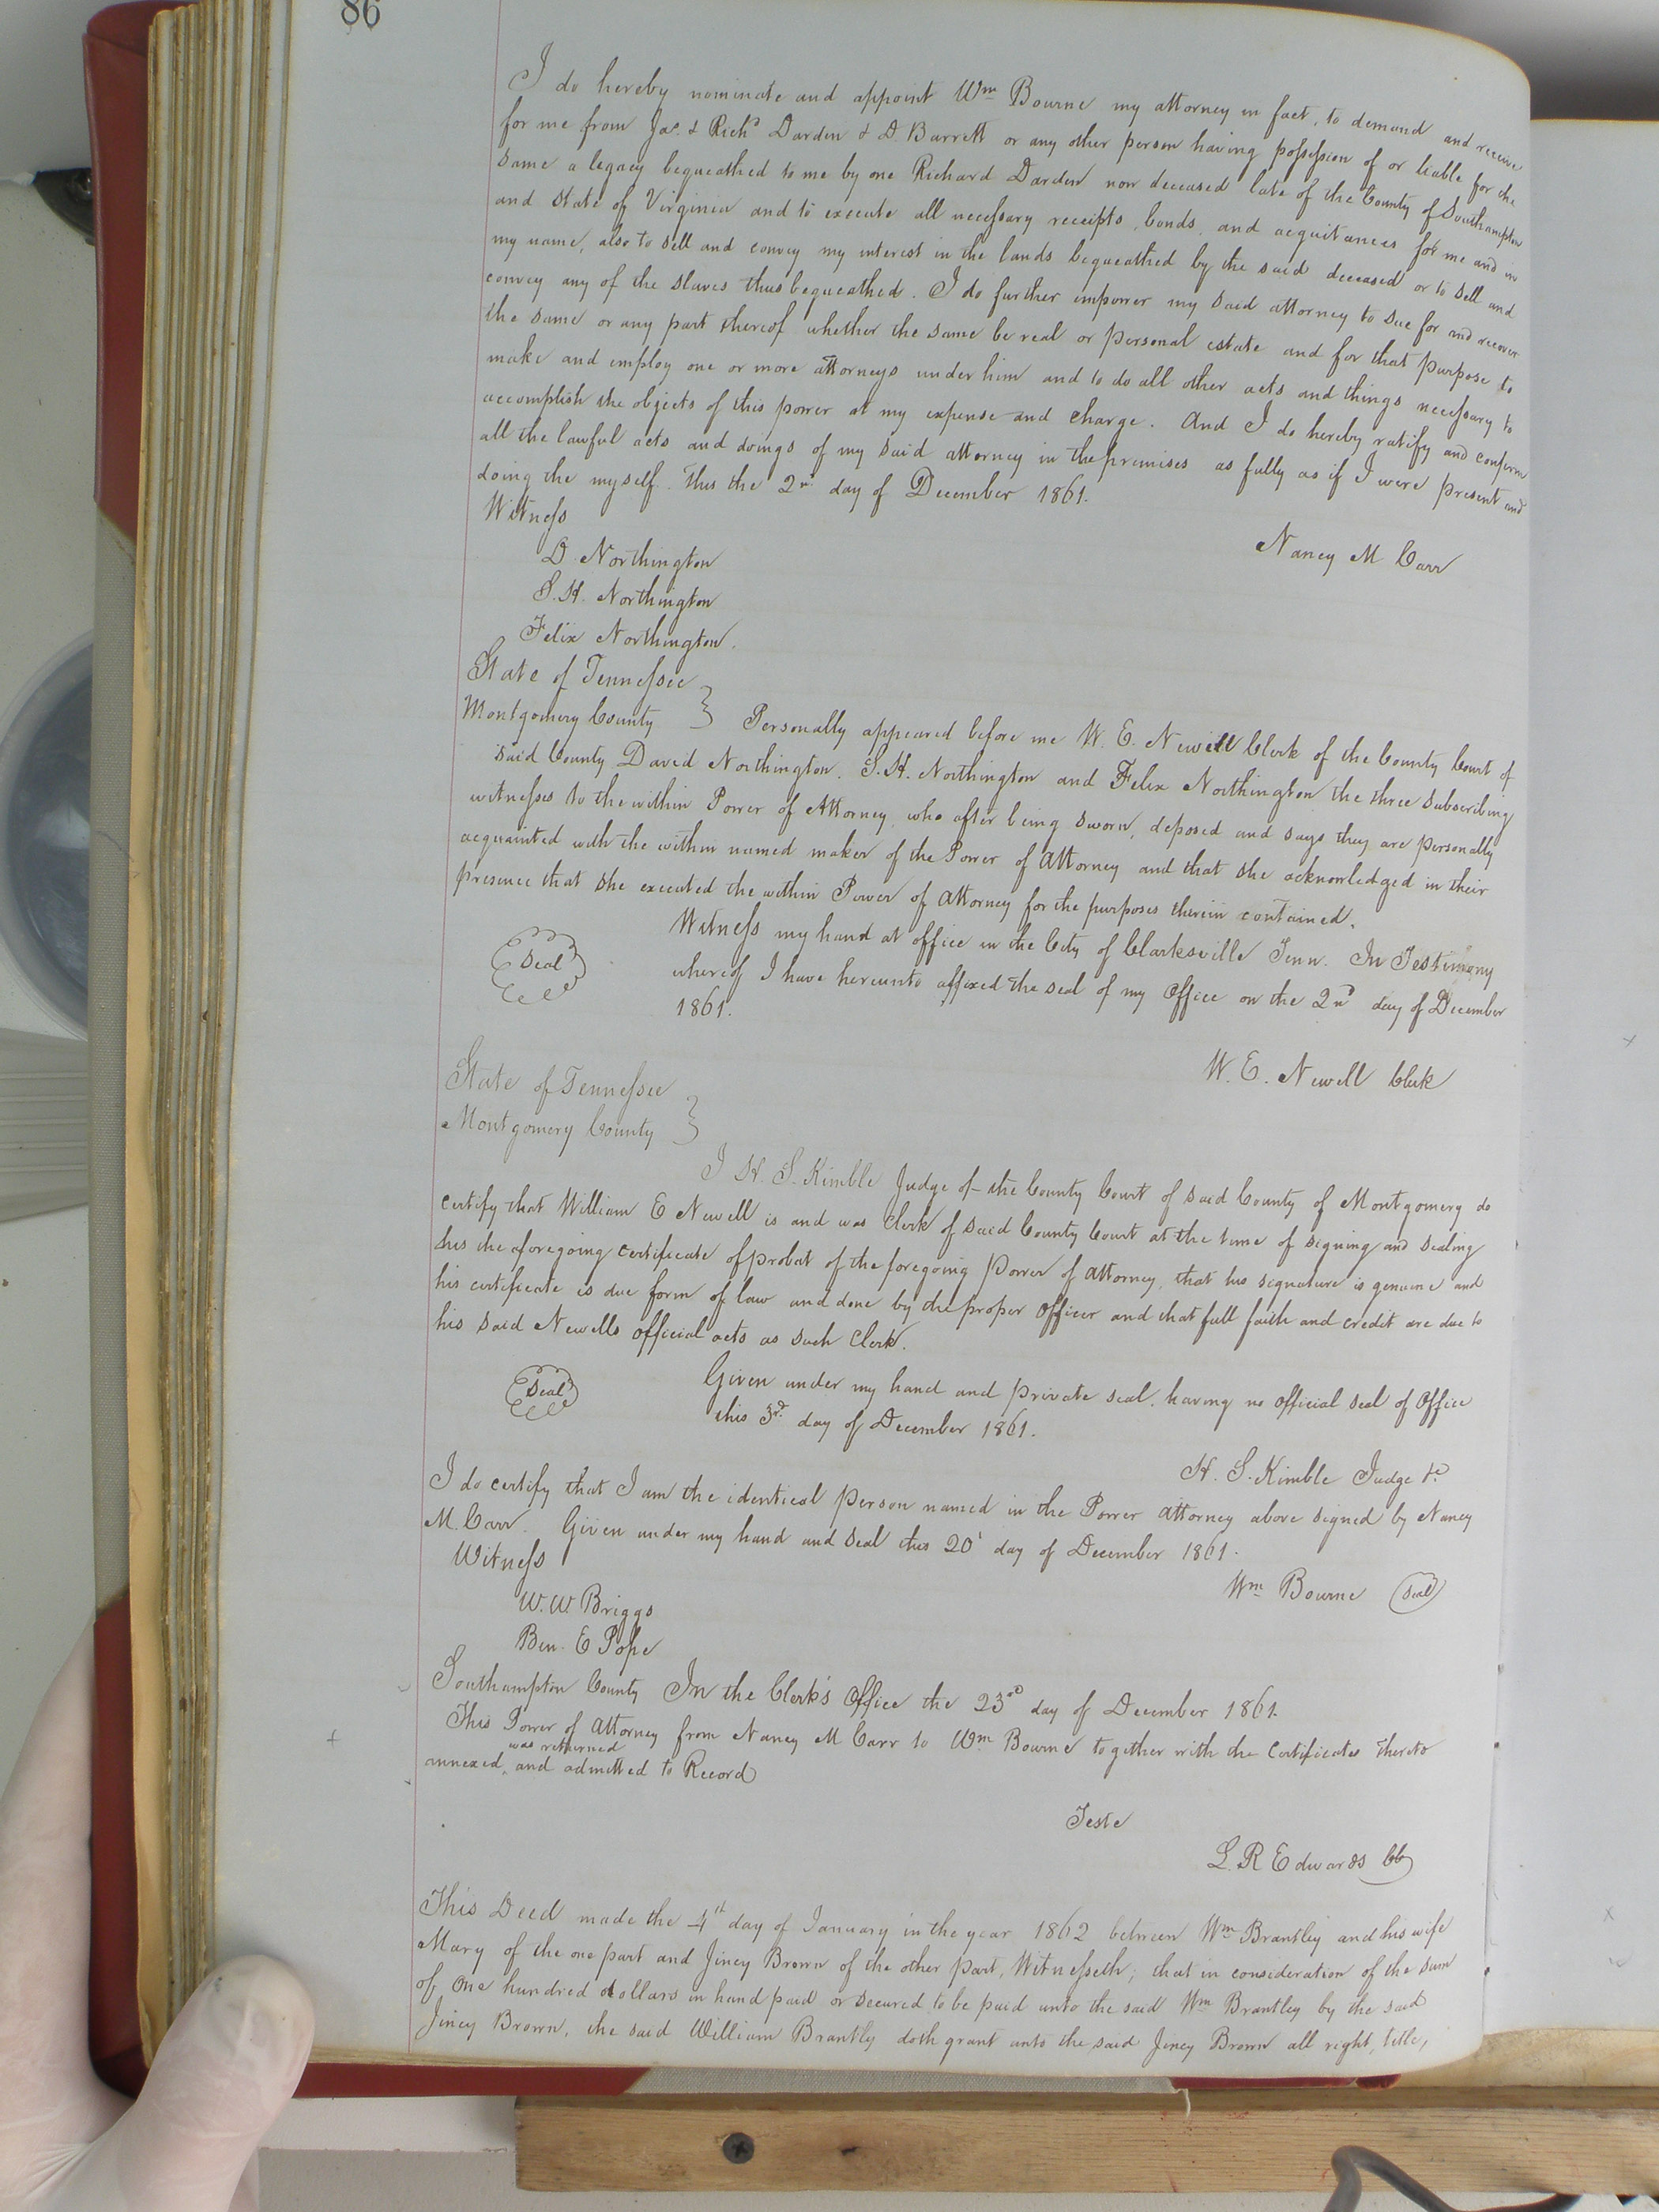 86
I do hereby nominate and appoint Wm Bourne my attorney in fact, to demand and receive
for me from Jas. & Richd Darden & D. Barrett or any other person having possession of or liable for the
same a legacy bequeathed to me by one Richard Darden now deceased late of the County of Southampton
and State of Virginia and to execute all necessary receipts, bonds, and acquitances for me and in
my name, also to sell and convey my interest in the lands bequeathed by the said deceased or to sell and
convey any of the slaves thus bequeathed. I do further impower my said attorney to sue for and recover
the same or any part thereof whether the same be real or personal estate and for that purpose to
make and employ one or more attorneys under him and to do all other acts and things necessary to
accomplish the objects of this power at my expense and charge. And I do hereby ratify and confirm
all the lawful acts and doings of my said attorney in the premises as fully as if I were present and
doing the myself. This the 2nd day of December 1861.
Witness
Nancy M Carr
D. Northington
S. H. Northington
Felix Northington.
State of Tennessee
Montgomery County } Personally appeared before me W. E. Newell Clerk of the County Court of
said County David Northington, S. H. Northington and Felix Northington the three subscribing
witnesses to the within Power of Attorney, who after being sworn, deposed and says they are personally
acquainted with the within named maker of the Power of Attorney and that she acknowledged in their
presence that she executed the within Power of Attorney for the purposes therein contained.
Witness my hand at office in the City of Clarksville Tenn. In Testimony
Seal
whereof I have hereunto affixed the seal of my Office on the 2nd day of December
1861.
W. E. Newell Clerk
State of Tennessee
Montgomery County }
I H. S. Kimble Judge of the County Court of said County of Montgomery do
certify that William E Newell is and was Clerk of said County Court at the time of signing and sealing
his the foregoing certificate of probat of the foregoing Power of Attorney, that his signature is genuine and
his certificate is due form of law and done by the proper Officer and that full faith and credit are due to
his said Newells official acts as such Clerk.
Seal
Given under my hand and private seal, having no official seal of Office
this 3rd day of December 1861.
H. S. Kimble Judge &c
I do certify that I am the identical person named in the Power Attorney above signed by Nancy
M. Carr. Given under my hand and seal this 20t day of December 1861.
Witness
Wm Bourne Seal
W. W. Briggs
Ben. E Pope
Southampton County In the Clerk's Office the 23rd day of December 1861.
This Power of Attorney from Nancy M Carr to Wm Bourne together with the Certificates thereto
was returned
annexed, and admitted to Record
Teste
L. R Edwards CC
This Deed made the 4th day of January in the year 1862 between Wm Brantley and his wife
Mary of the one part and Jincy Brown of the other part, Witnesseth; that in consideration of the sum
of One hundred dollars in hand paid or secured to be paid unto the said Wm Brantley by the said
Jincy Brown, the said William Brantly doth grant unto the said Jincy Brown all right, title,